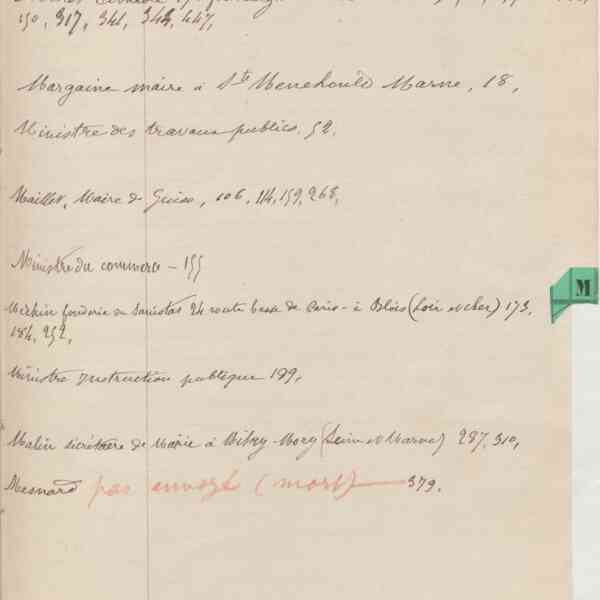 150, 317, 341, 343, 447,
Margaine maire à Ste Menehould Marne, 18,
Ministre des travaux publics. 52.
Maillet, Maire de Guise, 106, 114, 159, 268,
Ministre du commerce - 155
fonderie 24 route basse de Paris - à Blois (Loir et cher) 173,
184, 252,
Ministre Instruction publique 189,
Malin secrétaire de Mairie à Mitry-Mory (Seine et Marne) 287, 310,
Mesnard pas envoyé (mort) 379.
M